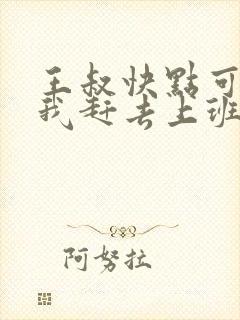 王叔快點可
我赶去上班
阿努拉